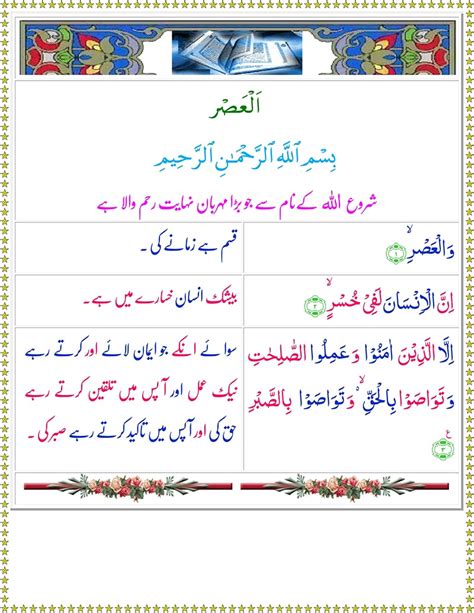 اَلْعَصْر
بِسْمِ ٱللَّهِ ٱلرَّحْمَـٰنِ ٱلرَّحِيمِ
شروع اللہ کے نام سے جو بڑا مہربان نہایت رحم والا ہے
وَالْعَصْرِۙ ﴿۱﴾
قسم ہے زمانے کی ۔
اِنَّ الْاِنْسَانَ لَفِیْ خُسْرٍۙ ﴿۲﴾
بیشک انسان خسارے میں ہے۔
اِلَّا الَّذِیْنَ اٰمَنُوْا وَعَمِلُوا الصّٰلِحٰتِ
وَتَوَاصَوْا بِالْحَقِّ ۙ وَتَوَاصَوْا بِالصَّبْرِ
ع
﴿۳﴾
سوائے انکے جو ایمان لائے اور کرتے رہے
نیک عمل اور آپس میں تلقین کرتے رہے
حق کی اور آپس میں تاکید کرتے رہے صبر کی ۔